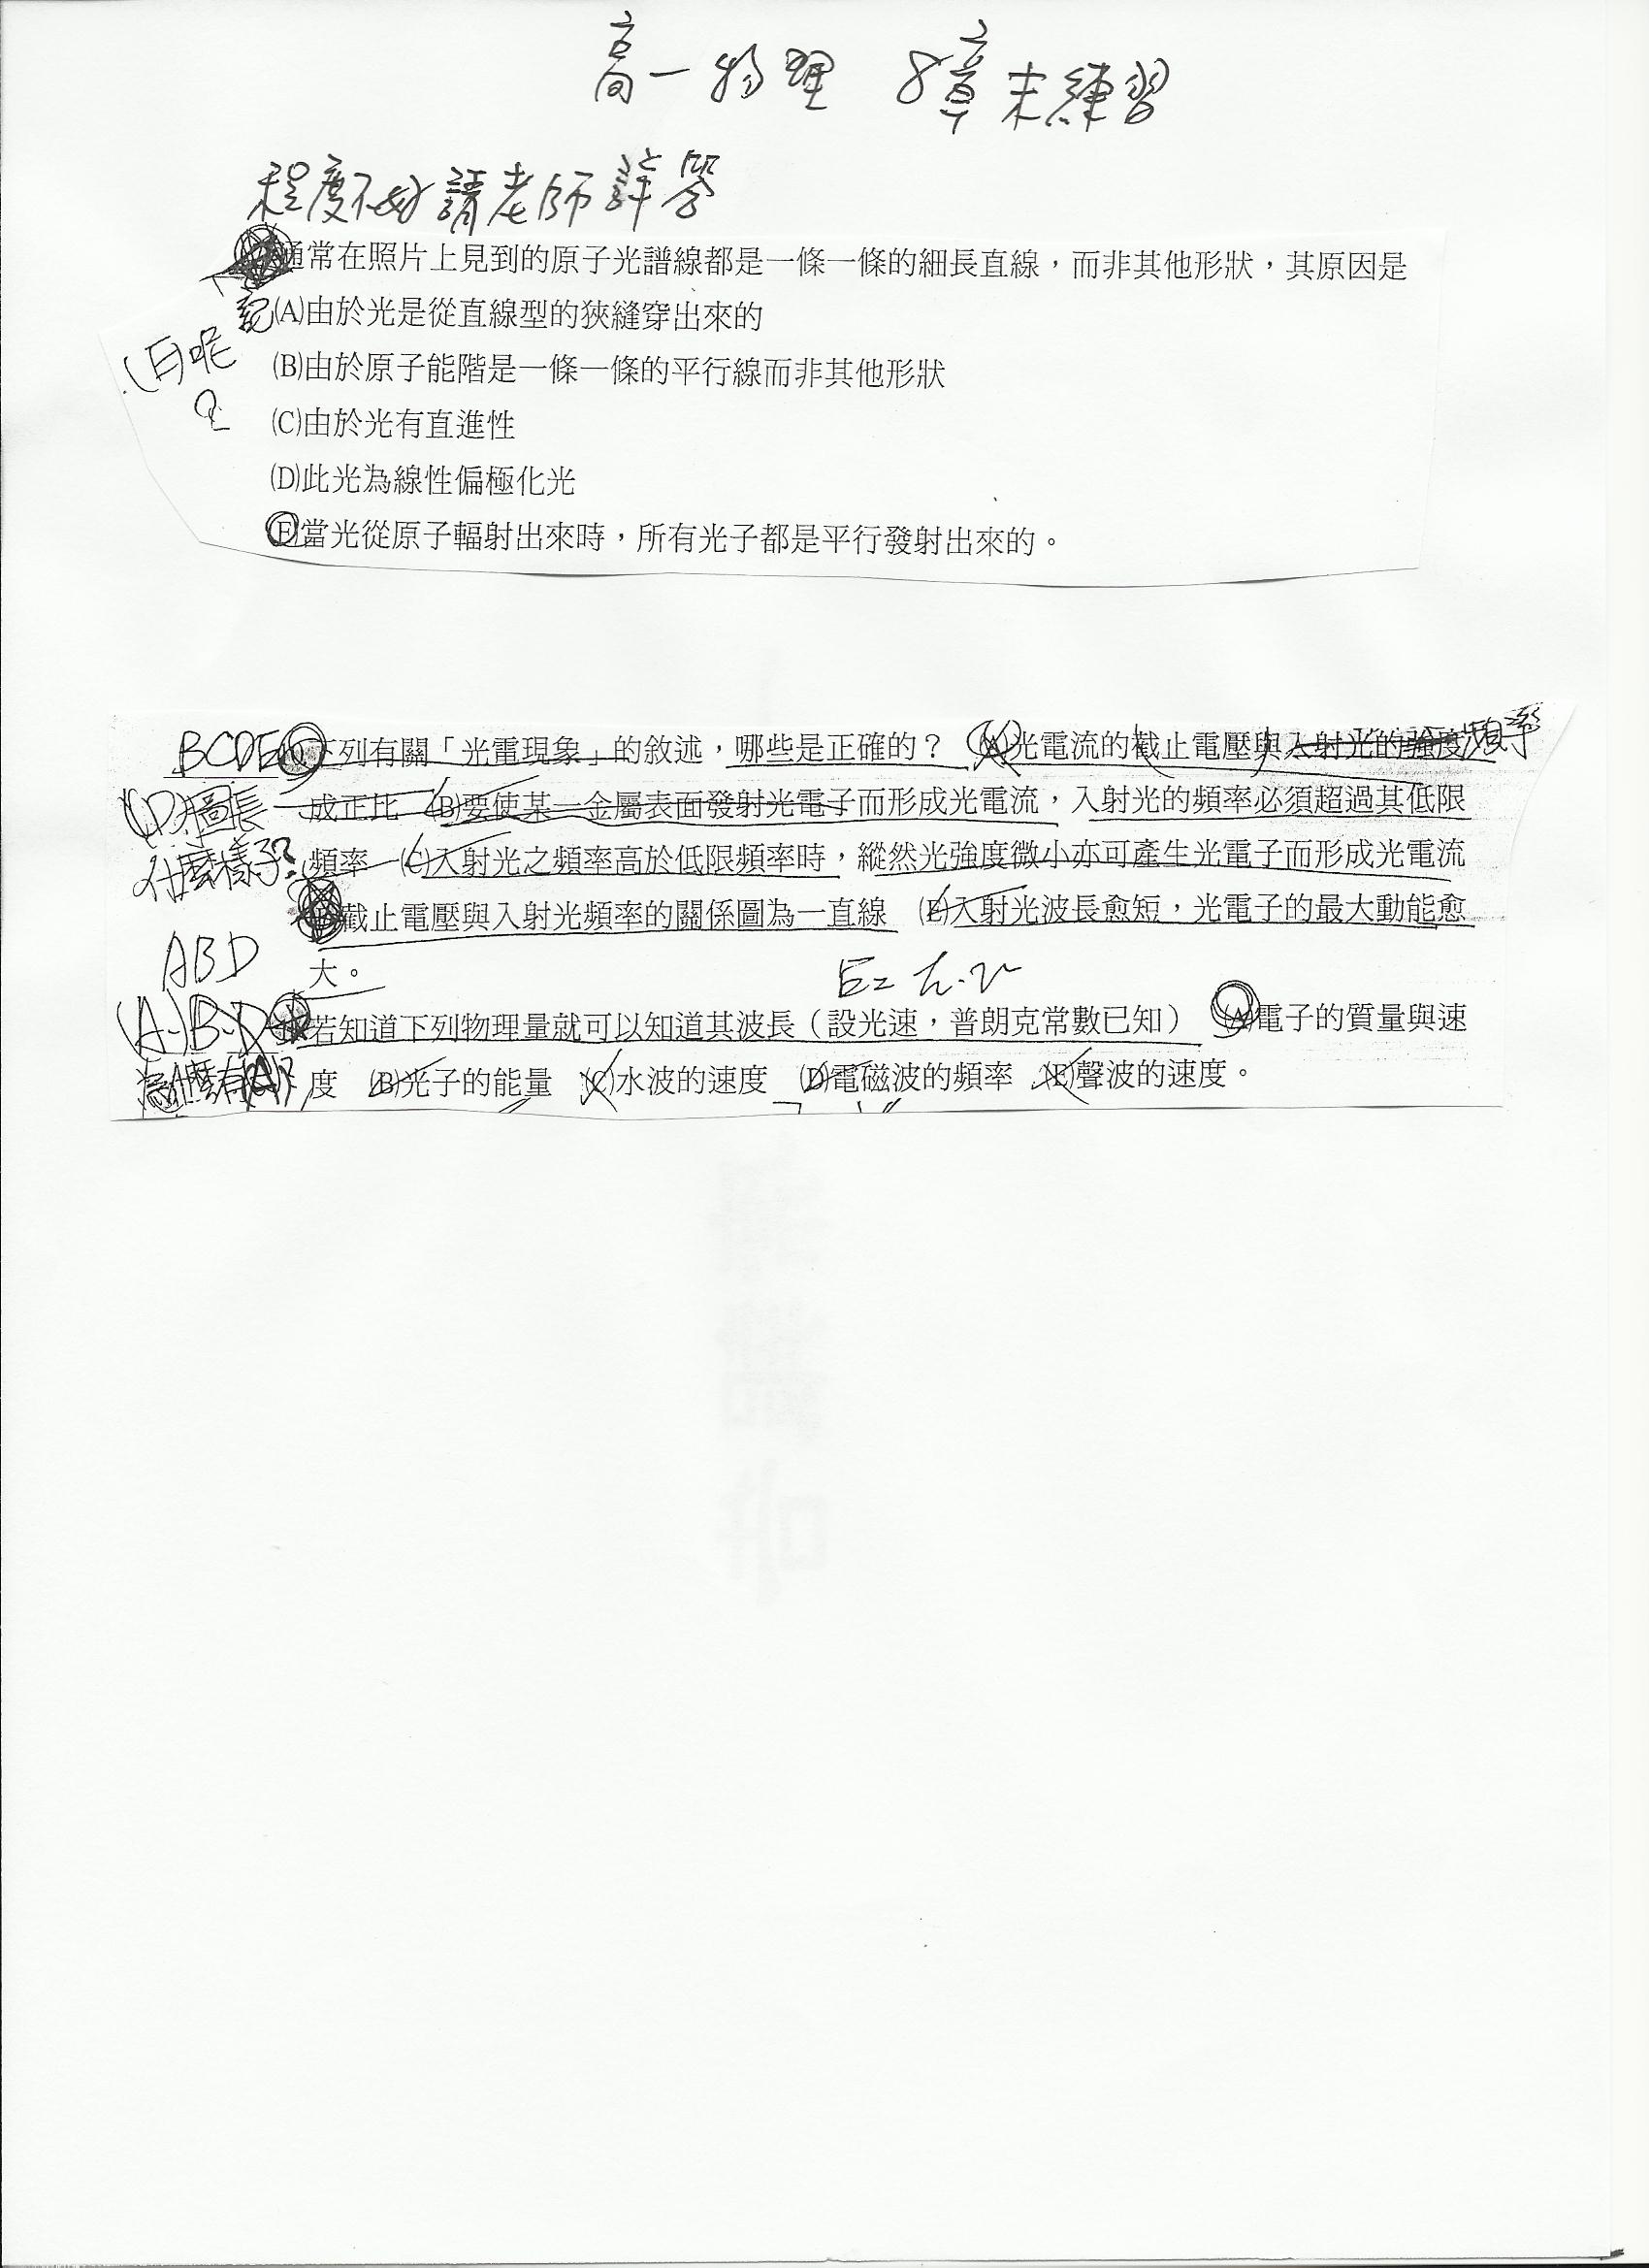 高一物理 8章末練習
程度不好請老師詳答
通常在照片上見到的原子光譜線都是一條一條的細長直線，而非其他形狀，其原因是
記(A)由於光是從直線型的狹縫穿出來的
(E)呢?
(B)由於原子能階是一條一條的平行線而非其他形狀
(C)由於光有直進性
(D)此光為線性偏極化光
(E)當光從原子輻射出來時，所有光子都是平行發射出來的。
BCDE 下列有關「光電現象」的敘述，哪些是正確的？ (A)光電流的截止電壓與入射光的強度 頻率
成正比 (B)要使某一金屬表面發射光電子而形成光電流，入射光的頻率必須超過其低限
(D)圖長什麼樣子?
頻率 (C)入射光之頻率高於低限頻率時，縱然光強度微小亦可產生光電子而形成光電流
(D)截止電壓與入射光頻率的關係圖為一直線 (E)入射光波長愈短，光電子的最大動能愈
大。
ABD
E=h·ν
(A)B.D 若知道下列物理量就可以知道其波長（設光速，普朗克常數已知） (A)電子的質量與速
為什麼有(A)?
度 (B)光子的能量 (C)水波的速度 (D)電磁波的頻率 (E)聲波的速度。